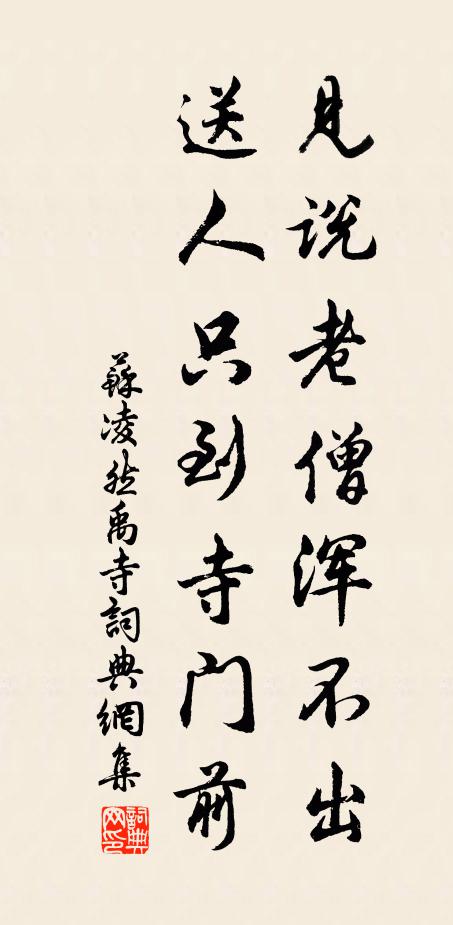 见说老僧浑不出
送人只到寺门前
蘇凌然禹寺詞典網集
詞典网印